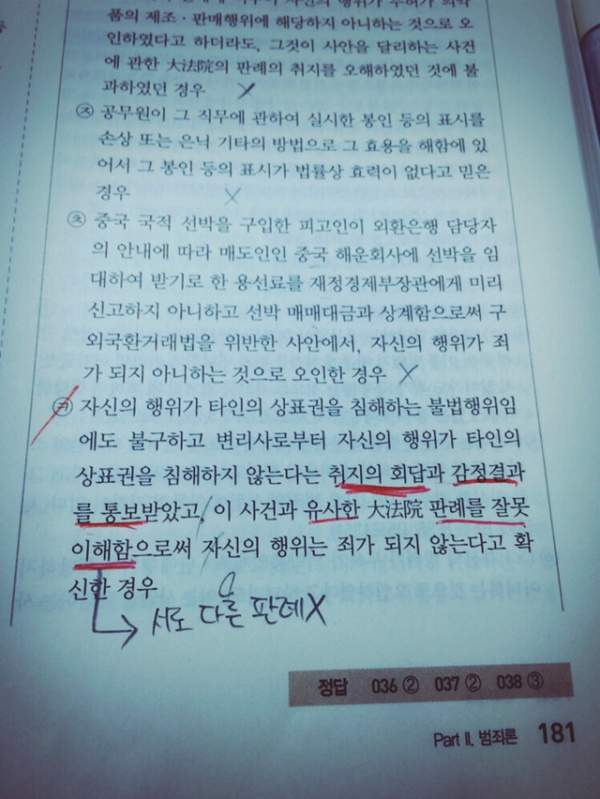 품의 제조·판매행위에 해당하지 아니하는 것으로 오
인하였다고 하더라도, 그것이 사안을 달리하는 사건
에 관한 大法院의 판례의 취지를 오해하였던 것에 불
과하였던 경우 X
㉨ 공무원이 그 직무에 관하여 실시한 봉인 등의 표시를
손상 또는 은닉 기타의 방법으로 그 효용을 해함에 있
어서 그 봉인 등의 표시가 법률상 효력이 없다고 믿은
경우 X
㉩ 중국 국적 선박을 구입한 피고인이 외환은행 담당자
의 안내에 따라 매도인인 중국 해운회사에 선박을 임
대하여 받기로 한 용선료를 재정경제부장관에게 미리
신고하지 아니하고 선박 매매대금과 상계함으로써 구
외국환거래법을 위반한 사안에서, 자신의 행위가 죄
가 되지 아니하는 것으로 오인한 경우 X
㉪ 자신의 행위가 타인의 상표권을 침해하는 불법행위임
에도 불구하고 변리사로부터 자신의 행위가 타인의
상표권을 침해하지 않는다는 취지의 회답과 감정결과
를 통보받았고, 이 사건과 유사한 大法院 판례를 잘못
이해함으로써 자신의 행위는 죄가 되지 않는다고 확
신한 경우 O
서로 다른 판례X
정답 036 ② 037 ② 038 ③
Part II. 범죄론 181